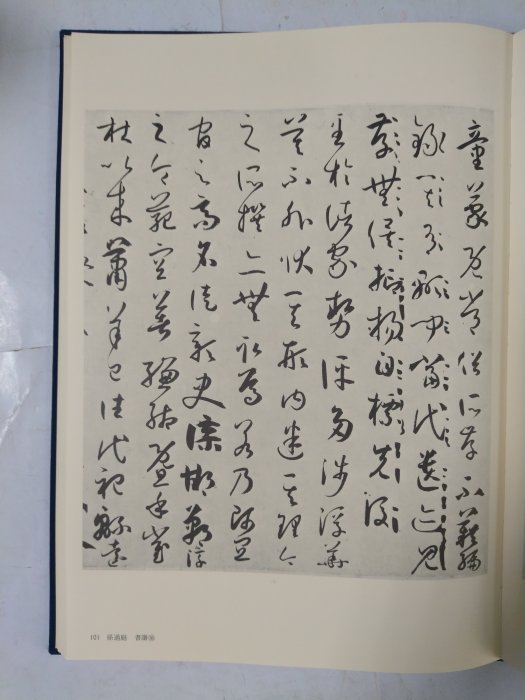 童蒙既常俗所存不藉編
錄其有顯聞當代遺迹見
存無俟抽揚自標先後
至於諸家勢評多涉浮華
莫不外狀其形內迷其理今
之所撰亦無取焉若乃師宜
官之高名徒彰史牒邯鄲淳
之令範空著縑緗暨乎崔
杜以來蕭羊已往代祀綿遠
101 孫過庭 書譜